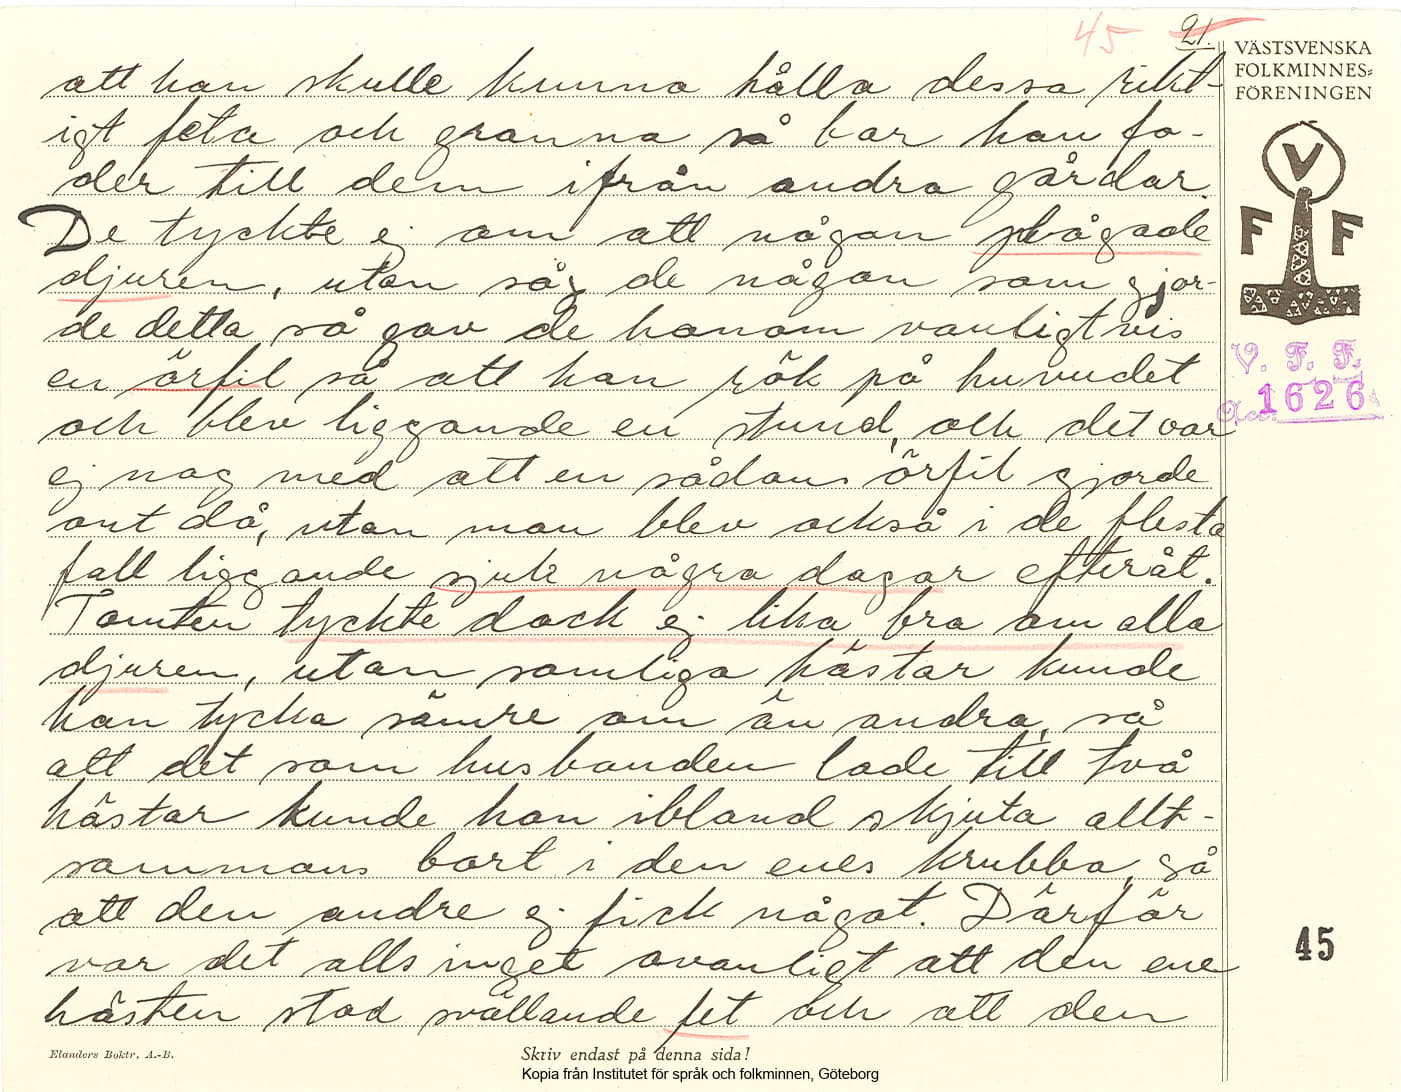 45 21.
VÄSTSVENSKA
FOLKMINNES=
FÖRENINGEN
att han skulle kunna hålla dessa rikt-
igt feta och granna så bar han fo-
der till dem ifrån andra gårdar.
De tyckte ej om att någon plågade
djuren, utan såg de någon som gjor-
de detta så gav de honom vanligtvis
en örfil så att han rök på huvudet
och blev liggande en stund, och det var
ej nog med att en sådan örfil gjorde
ont då, utan man blev också i de flesta
fall liggande sjuk några dagar efteråt.
Tomten tyckte dock ej lika bra om alla
djuren, utan somliga hästar kunde
han tycka sämre om än andra, så
att det som husbonden lade till två
hästar kunde han ibland skjuta allt-
sammans bort i den enes krubba, så
att den andre ej fick något. Därför
var det alls inget ovanligt att den ene
hästen stod svällande fet och att den
V
F F
V. F. F.
Acc. 1626
45
Elanders Boktr. A.-B.
Skriv endast på denna sida!
Kopia från Institutet för språk och folkminnen, Göteborg